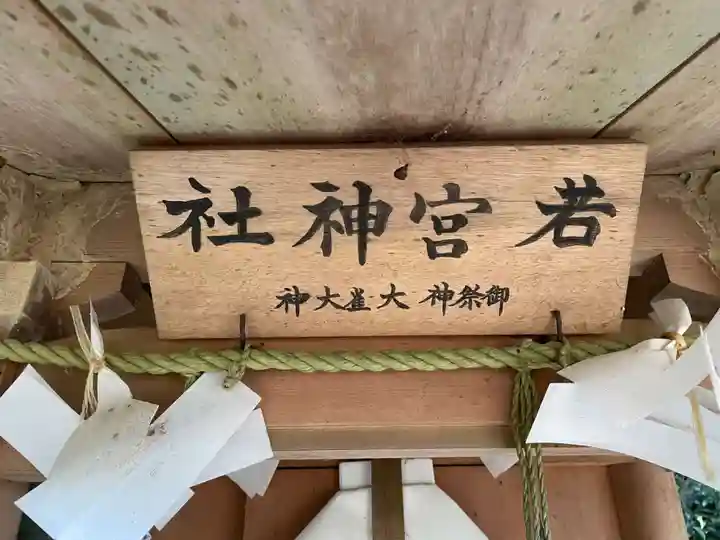 若宮神社
御祭神 大雀大神